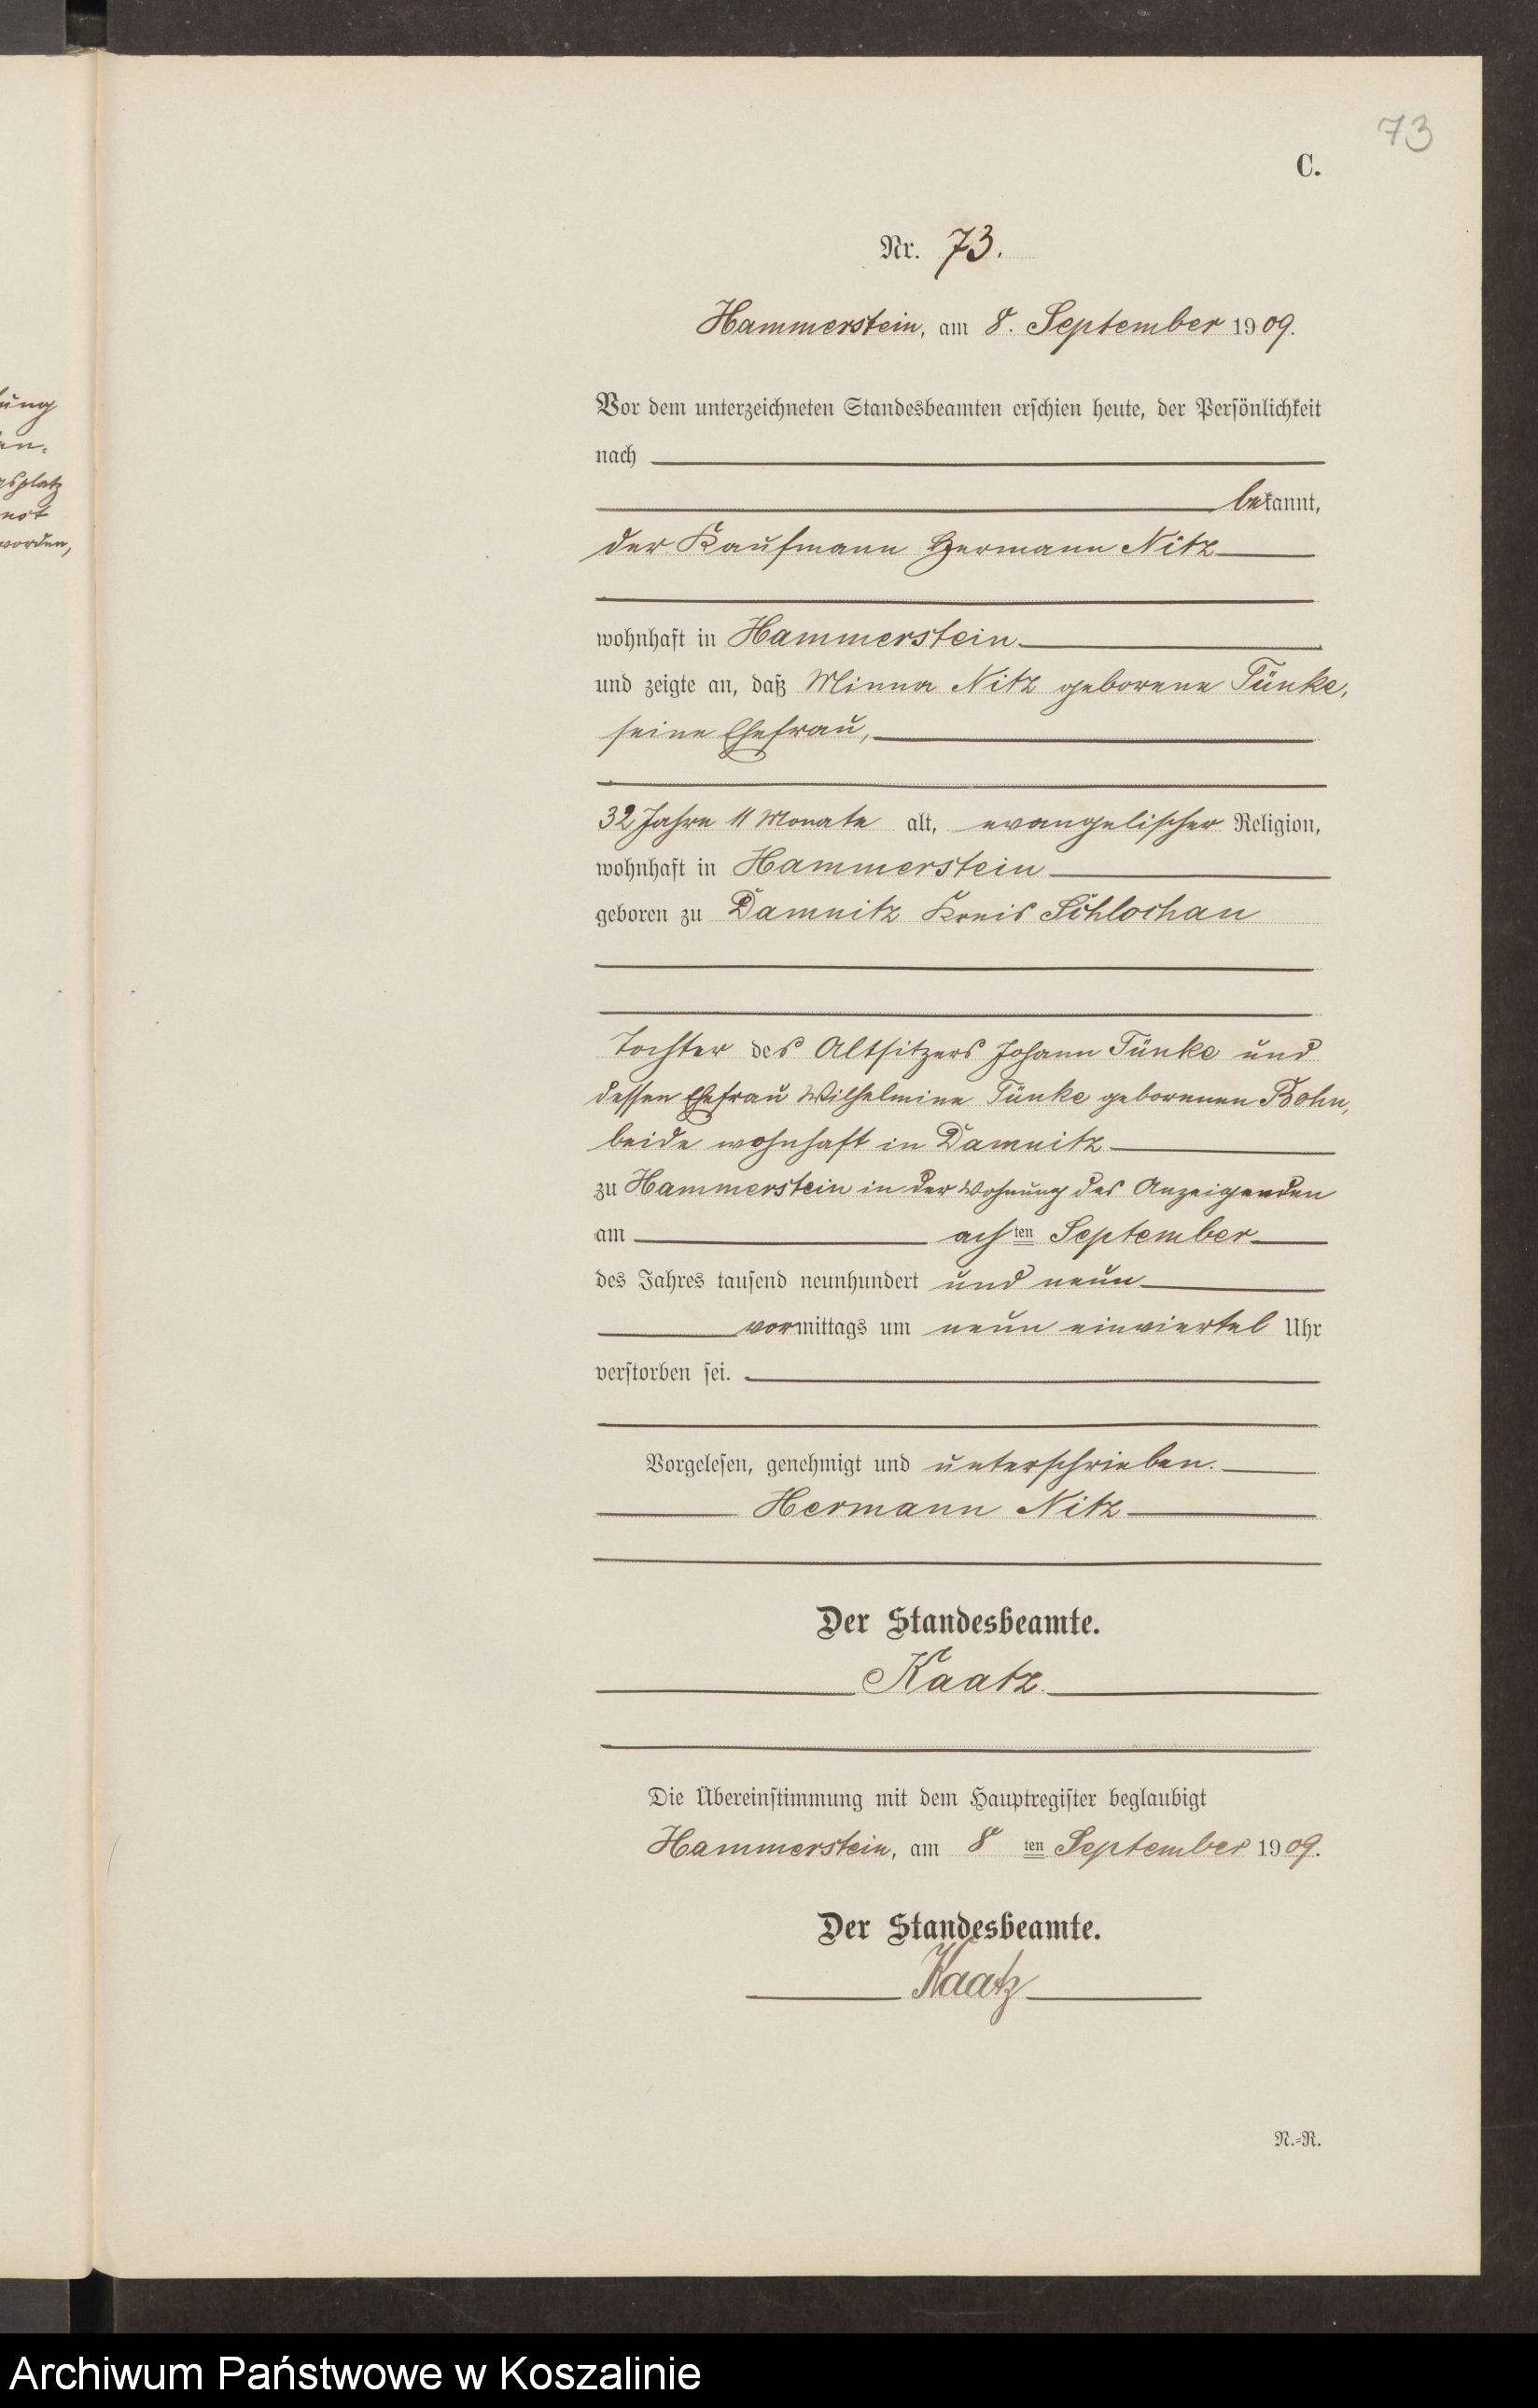 73
C.
Nr. 73.
Hammerstein, am 8. September 1909.
Vor dem unterzeichneten Standesbeamten erschien heute, der Persönlichkeit
nach
bekannt,
der Kaufmann Hermann Nitz
wohnhaft in Hammerstein
und zeigte an, daß Minna Nitz geborene Tünke,
seine Ehefrau,
32 Jahre 11 Monate alt, evangelischer Religion,
wohnhaft in Hammerstein
geboren zu Damnitz Kreis Schlochau
Tochter des Altsitzers Johann Tünke und
dessen Ehefrau Wilhelmine Tünke geborenen Bohn,
beide wohnhaft in Damnitz
zu Hammerstein in der Wohnung des Anzeigenden
am achten September
des Jahres tausend neunhundert und neun
vormittags um neun einviertel Uhr
verstorben sei.
Vorgelesen, genehmigt und unterschrieben.
Hermann Nitz
Der Standesbeamte.
Kaatz.
Die Übereinstimmung mit dem Hauptregister beglaubigt
Hammerstein, am 8 ten September 1909.
Der Standesbeamte.
Kaatz
N.-R.
worden,
Archiwum Państwowe w Koszalinie